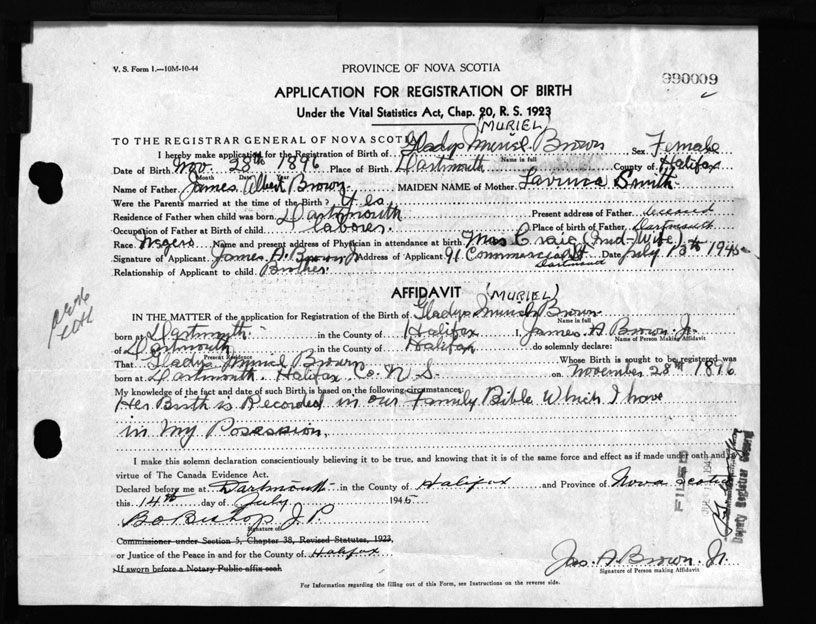 V. S. Form 1.—10M-10-44
PROVINCE OF NOVA SCOTIA
990009
APPLICATION FOR REGISTRATION OF BIRTH
Under the Vital Statistics Act, Chap. 20, R. S. 1923
(MURIEL)
TO THE REGISTRAR GENERAL OF NOVA SCOTIA
I hereby make application for the Registration of Birth of Gladys Muriel Brown Sex Female
Name in full
Date of Birth Nov. 28th 1896 Place of Birth Dartmouth County of Halifax
Month Date Year
Name of Father James Albert Brown. MAIDEN NAME of Mother Lavinia Smith
Were the Parents married at the time of the Birth? Yes
Residence of Father when child was born Dartmouth Present address of Father deceased
Occupation of Father at Birth of child labores. Place of birth of Father Dartmouth
Race. Negero Name and present address of Physician in attendance at birth Mrs Craig (Mid-Wife)
Signature of Applicant James A. Brown Jr Address of Applicant 91 Commercial St Dartmouth Date July 13th 1945
Relationship of Applicant to child Brother.
AFFIDAVIT (MURIEL)
IN THE MATTER of the application for Registration of the Birth of Gladys Muriel Brown
Name in full
born at Dartmouth in the County of Halifax I, James A Brown Jr.
Name of Person Making Affidavit
of Dartmouth in the County of Halifax do solemnly declare:
Present Residence
That Gladys Muriel Brown Whose Birth is sought to be registered was
born at Dartmouth, Halifax Co. N. S. on November 28th 1896
My knowledge of the fact and date of such Birth is based on the following circumstances:
Her Birth is Recorded in our Family Bible Which I have
in My Posession.
I make this solemn declaration conscientiously believing it to be true, and knowing that it is of the same force and effect as if made under oath and in
virtue of The Canada Evidence Act.
Declared before me at Dartmouth in the County of Halifax and Province of Nova Scotia
this 14th day of July 1945
B O Bishop J. P
Signature of
Commissioner under Section 5, Chapter 38, Revised Statutes, 1923,
or Justice of the Peace in and for the County of Halifax
If sworn before a Notary Public affix seal
Jas. A Brown. Jr.
Signature of Person making Affidavit
For Information regarding the filling out of this Form, see Instructions on the reverse side.
FILED
Deputy Registrar General